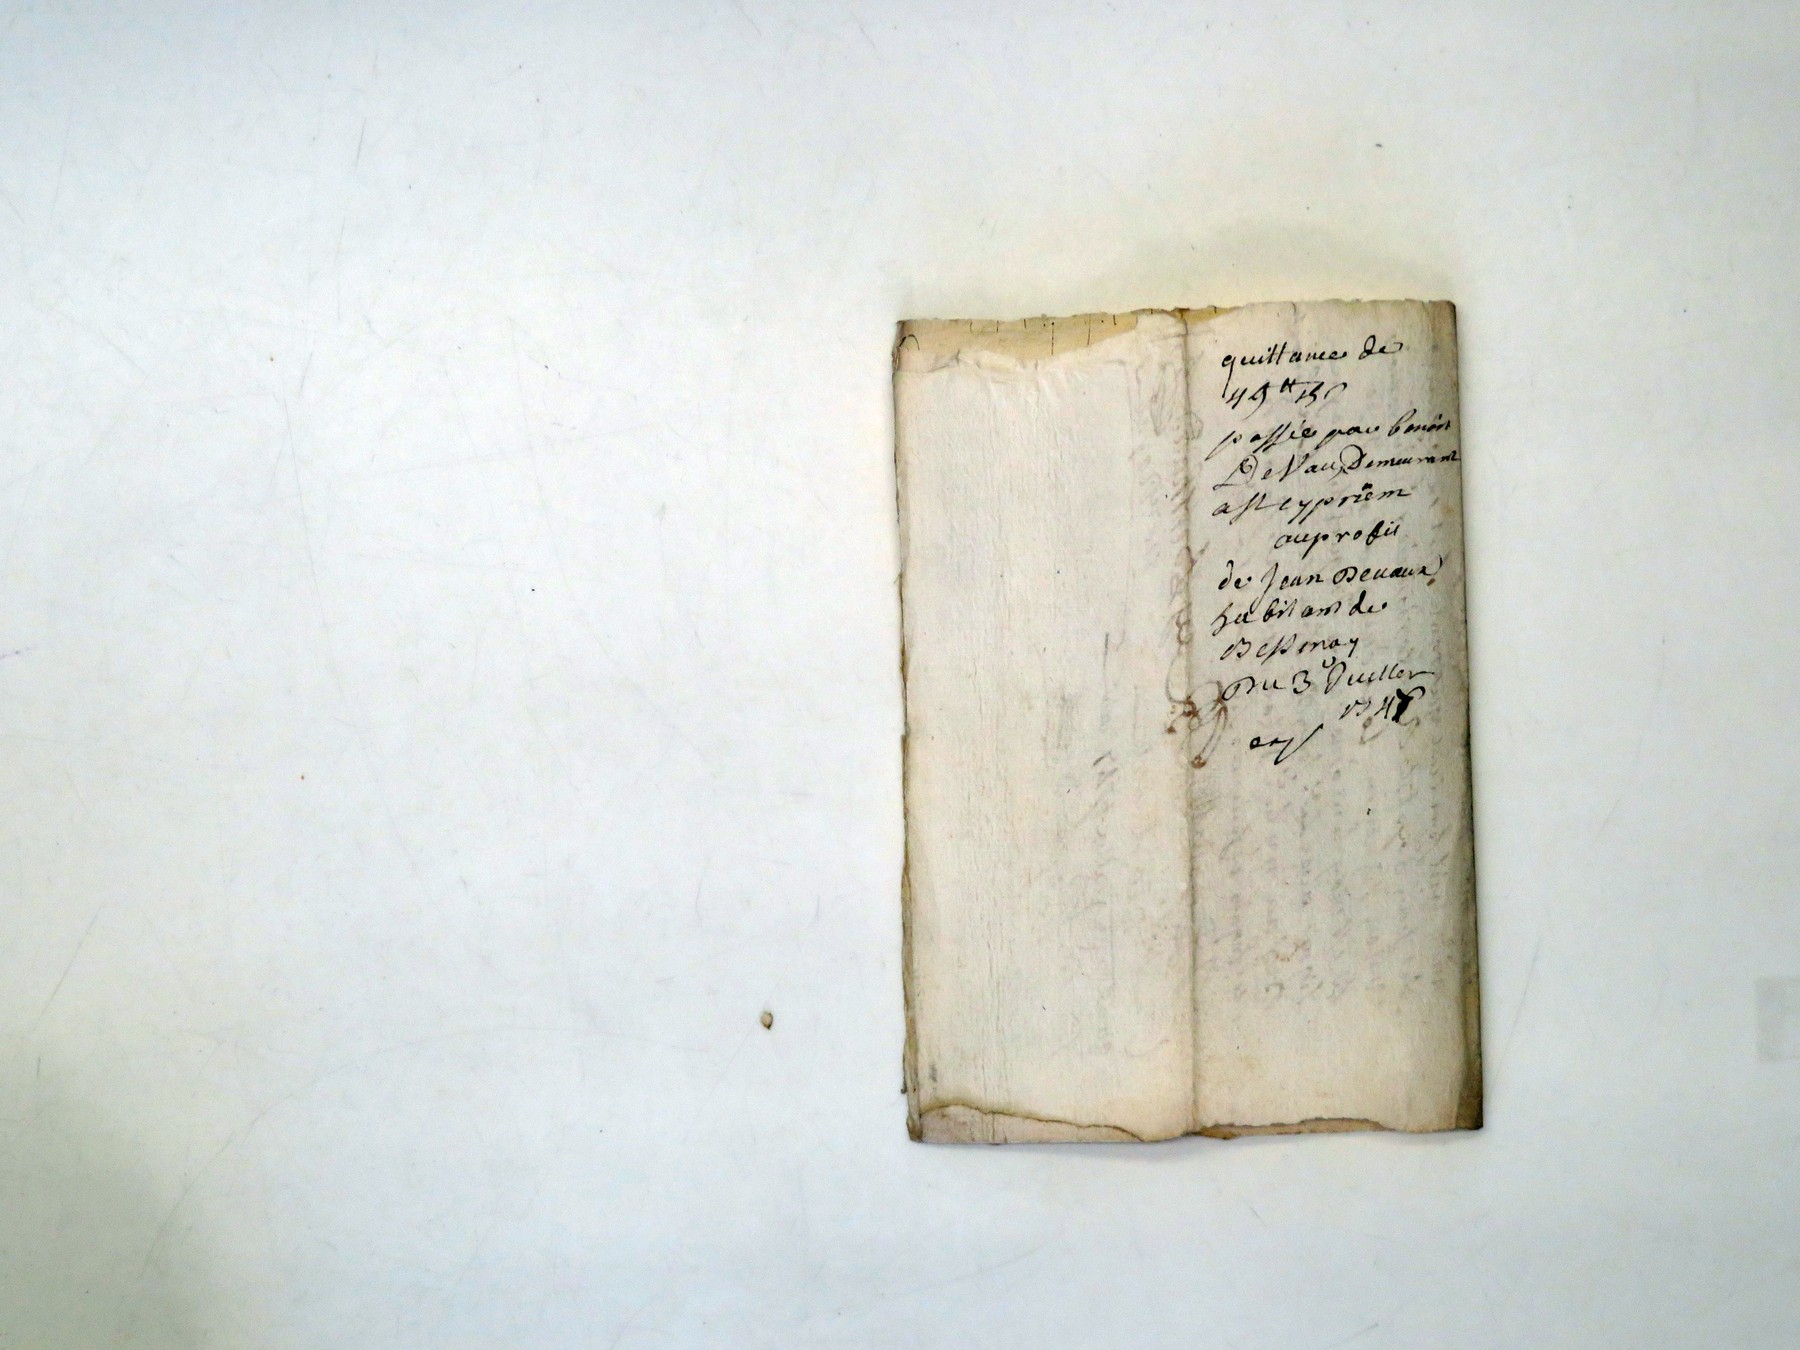 quittance de
49 tt 15 s
passée par benoit
De Vau, Demeurant
a st cyprien
au profit
de Jean Devaux
habitant de
Bessenay
Du 3e Juillet